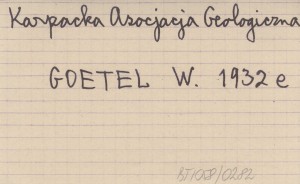 Karpacka Asocjacja Geologiczna
GOETEL W. 1932 e